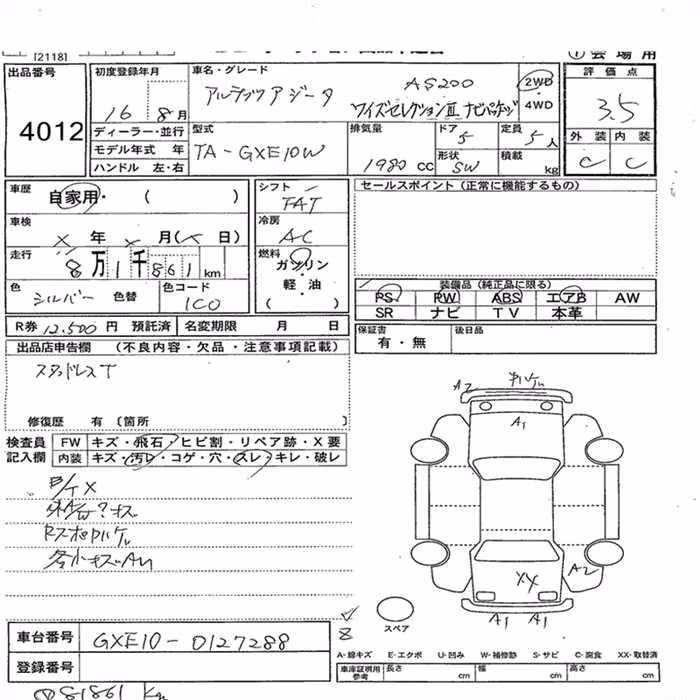 [2118]
① 会場用
出品番号
4012
初度登録年月
16 8月
ディーラー・並行
モデル年式 年
ハンドル 左・右
車名・グレード
アルテッツァ ジータ AS200
ワイズセレクションⅢ ナビパッケージ
2WD
・
4WD
型式
TA-GXE10W
排気量
1980 CC
ドア
5
定員
5人
形状
SW
積載
kg
評価点
3.5
外装 内装
C C
車歴
自家用・( )
車検
X 年 X 月( 日)
走行
8万1千861km
色
シルバー 色替
色コード
1C0
シフト
FAT
冷房
AC
燃料
ガソリン
・
軽・油
( )
セールスポイント(正常に機能するもの)
装備品(純正品に限る)
PS PW ABS エアB AW
SR ナビ TV 本革
R券 12,500円 預託済 名変期限 月 日
保証書
有・無
後日品
出品店申告欄 (不良内容・欠品・注意事項記載)
スタッドレスT
修復歴 有〔箇所 〕
検査員
記入欄
FW キズ・飛石・ヒビ割・リペア跡・X要
内装 キズ・汚レ・コゲ・穴・スレ・キレ・破レ
各小キズAU
A2
A1
A2
XX
A1 A1
スペア
車台番号
GXE10-0127288
登録番号
A-線キズ E-エクボ U-凹み W-補修勤 S-サビ C-腐食 XX-取替済
車庫証明用
参考
長さ cm 幅 cm 高さ cm
81861 Km